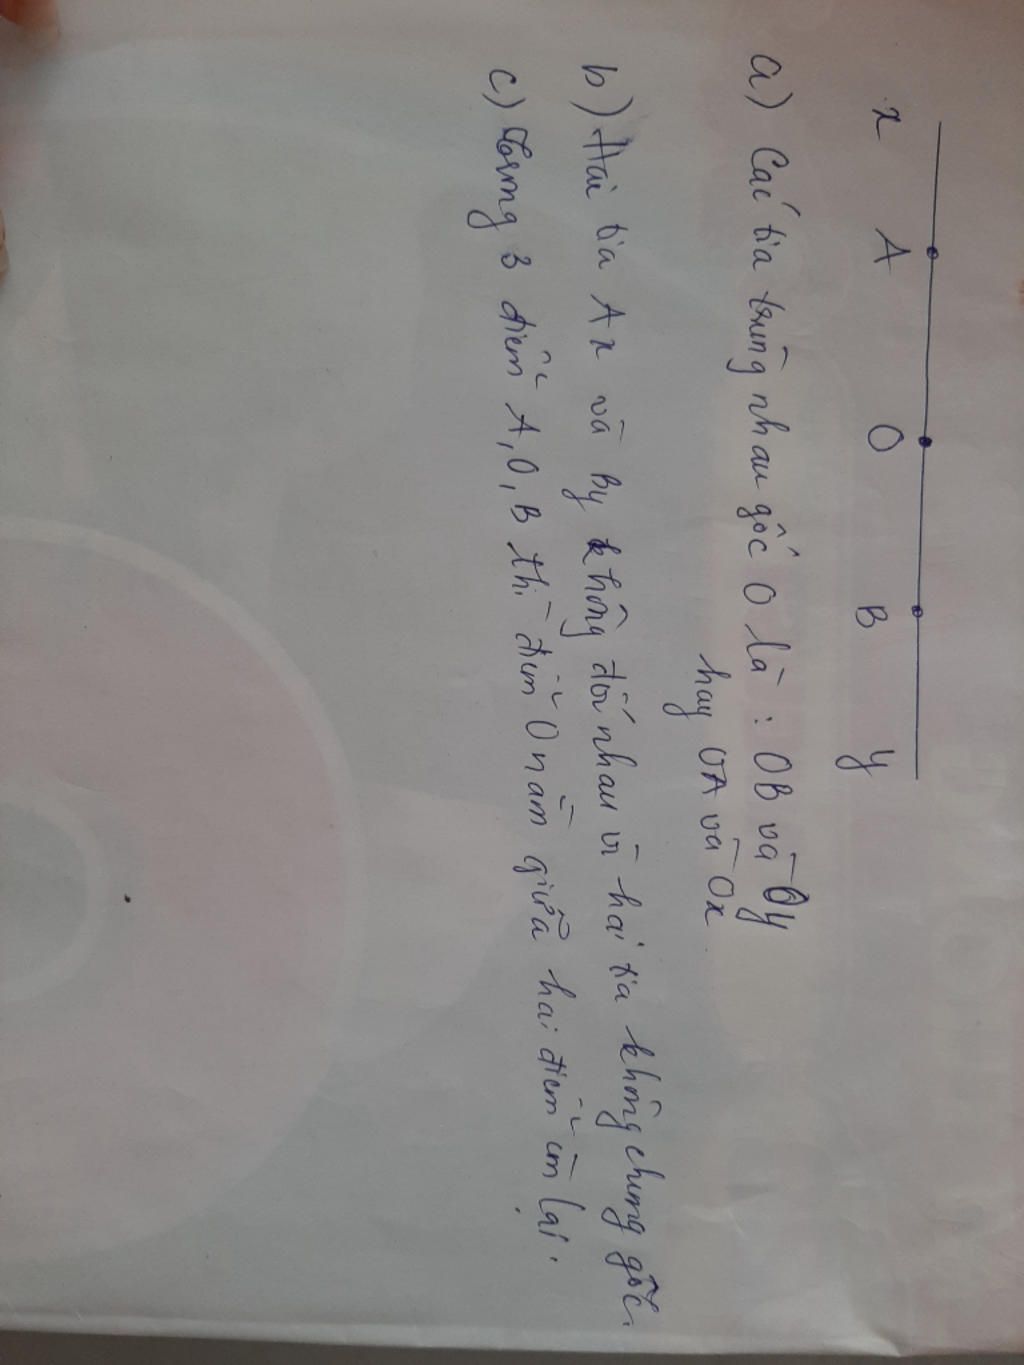 x A O B y
a) Các tia trùng nhau gốc O là : OB và Oy
hay OA và Ox.
b) Hai tia Ax và By không đối nhau vì hai tia không chung gốc.
c) Trong 3 điểm A, O, B thì điểm O nằm giữa hai điểm còn lại.